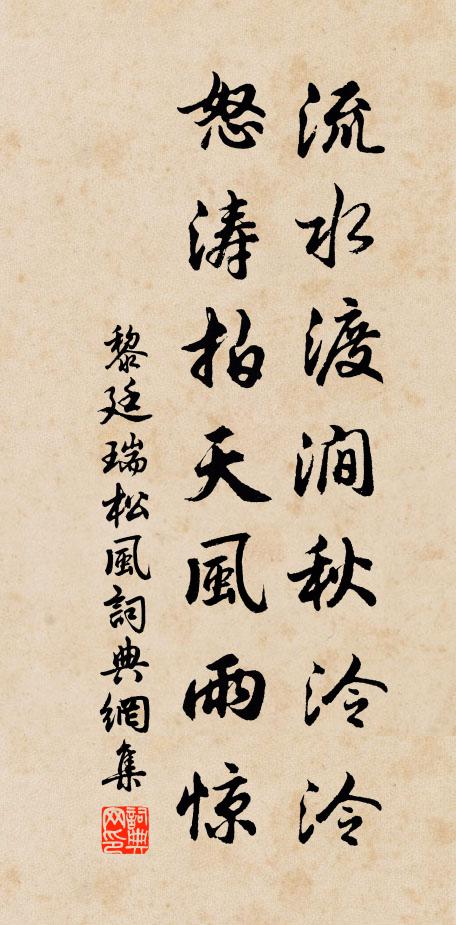 流水渡澗秋泠泠
怒涛拍天風雨惊
黎廷瑞松風詞典網集
詞典網印